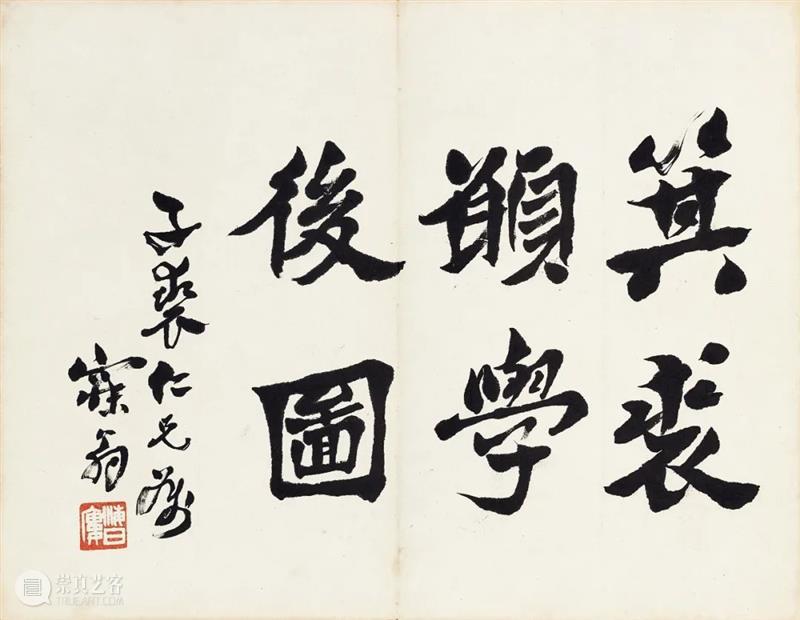 箕裘
學
後圖
子裘仁兄屬
寐翁
海日廔
崇真艺客
TRUEART.COM